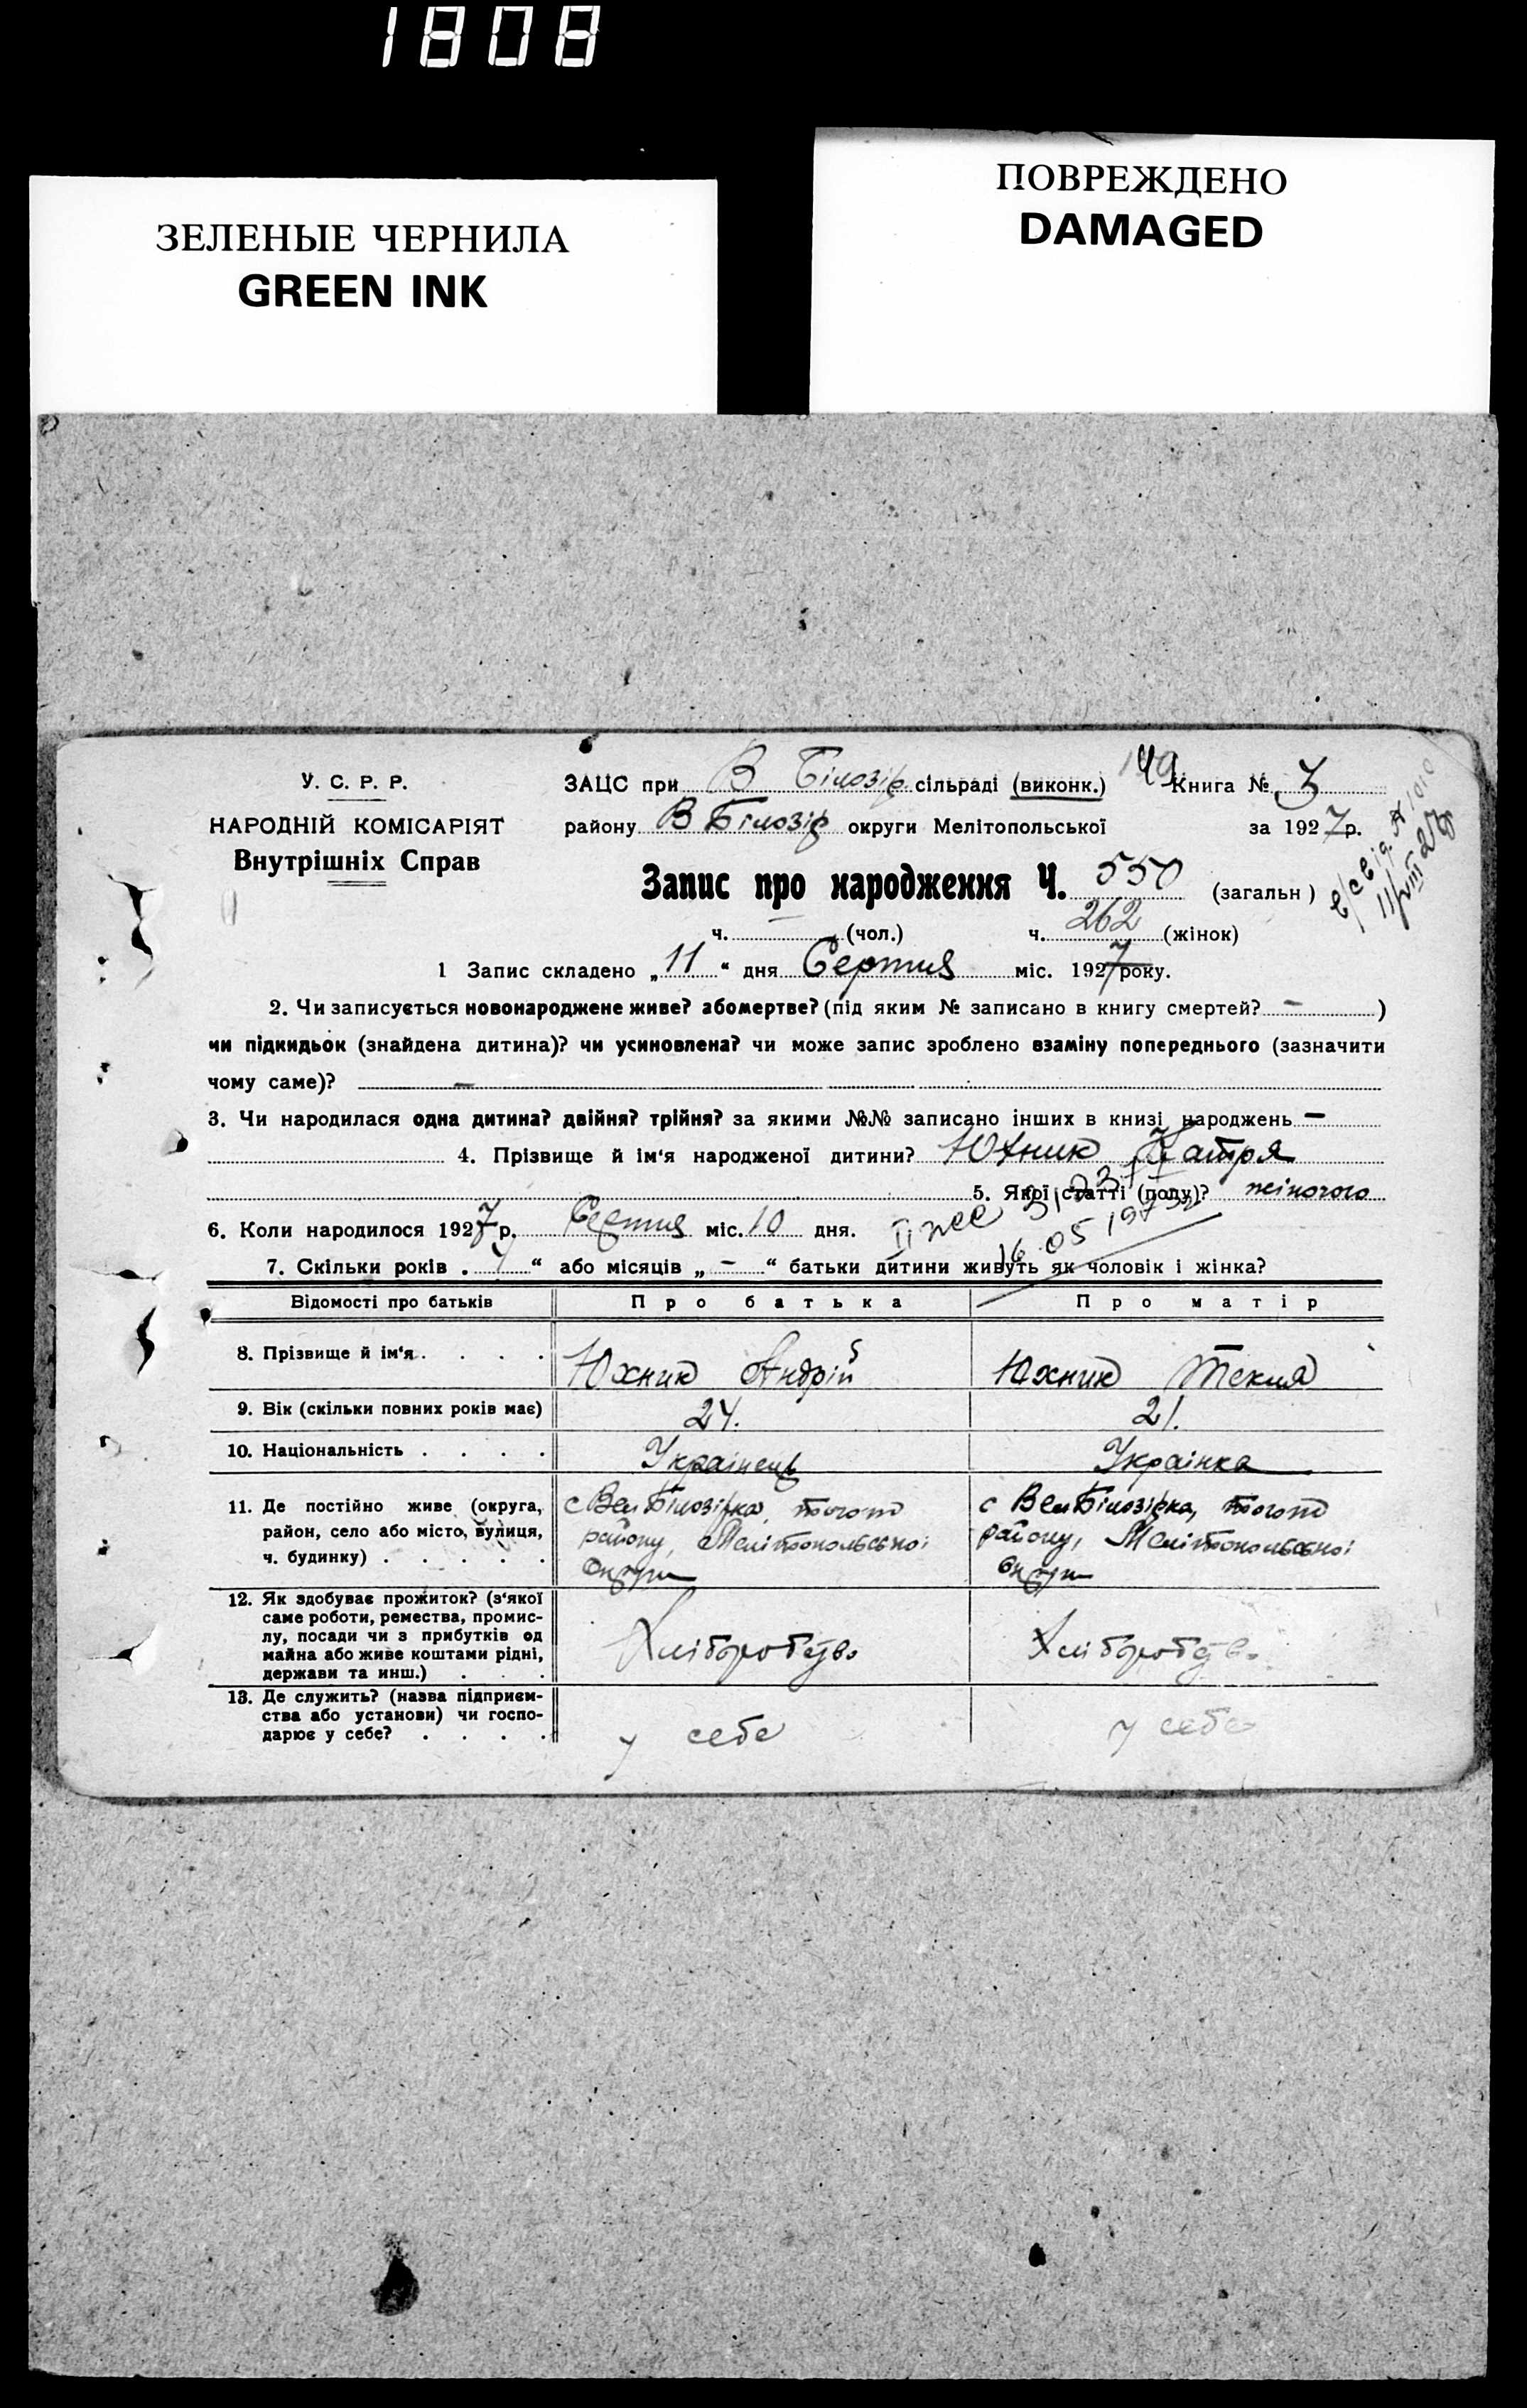 1808
ЗЕЛЕНЫЕ ЧЕРНИЛА
GREEN INK
ПОВРЕЖДЕНО
DAMAGED
У. С. Р. Р.
НАРОДНІЙ КОМІСАРІЯТ
Внутрішніх Справ
ЗАЦС при В Білозір. сільраді (виконк.) Книга № 3
району В Білозір округи Мелітопольської за 1927 р.
Запис про народження Ч. 550 (загальн)
ч. — (чол.) ч. 262 (жінок)
1 Запис складено „11“ дня Серпня міс. 1927 року.
2. Чи записується новонароджене живе? або мертве? (під яким № записано в книгу смертей? — )
чи підкидьок (знайдена дитина)? чи усиновлена? чи може запис зроблено взаміну попереднього (зазначити
чому саме)? —
3. Чи народилася одна дитина? двійня? трійня? за якими №№ записано інших в книзі народжень —
4. Прізвище й ім'я народженої дитини? Юхник Катря
5. Якої статті (полу)? жіночого
6. Коли народилося 1927 р. Серпня міс. 10 дня.
16.05.19
7. Скільки років „ “ або місяців „ — “ батьки дитини живуть як чоловік і жінка?
Відомості про батьків Про батька Про матір
8. Прізвище й ім'я . . . . Юхник Андрій Юхник Текля
9. Вік (скільки повних років має) 24. 21.
10. Національність . . . . Українець Українка
11. Де постійно живе (округа, район, село або місто, вулиця, ч. будинку) . . . . .
с Вел Білозірка, того ж
району, Мелітопольської
Округи
с Вел Білозірка, того ж
району, Мелітопольської
округи
12. Як здобуває прожиток? (з'якої
саме роботи, ремества, промис-
лу, посади чи з прибутків од
майна або живе коштами рідні,
держави та инш.) . . .
Хліборобув. Хліборобув.
13. Де служить? (назва підприєм-
ства або установи) чи госпо-
дарює у себе? . . . .
у себе у себе